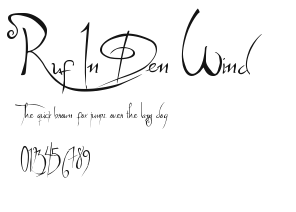 Ruf In Den Wind
The quick brown fox jumps over the lazy dog
0123456789